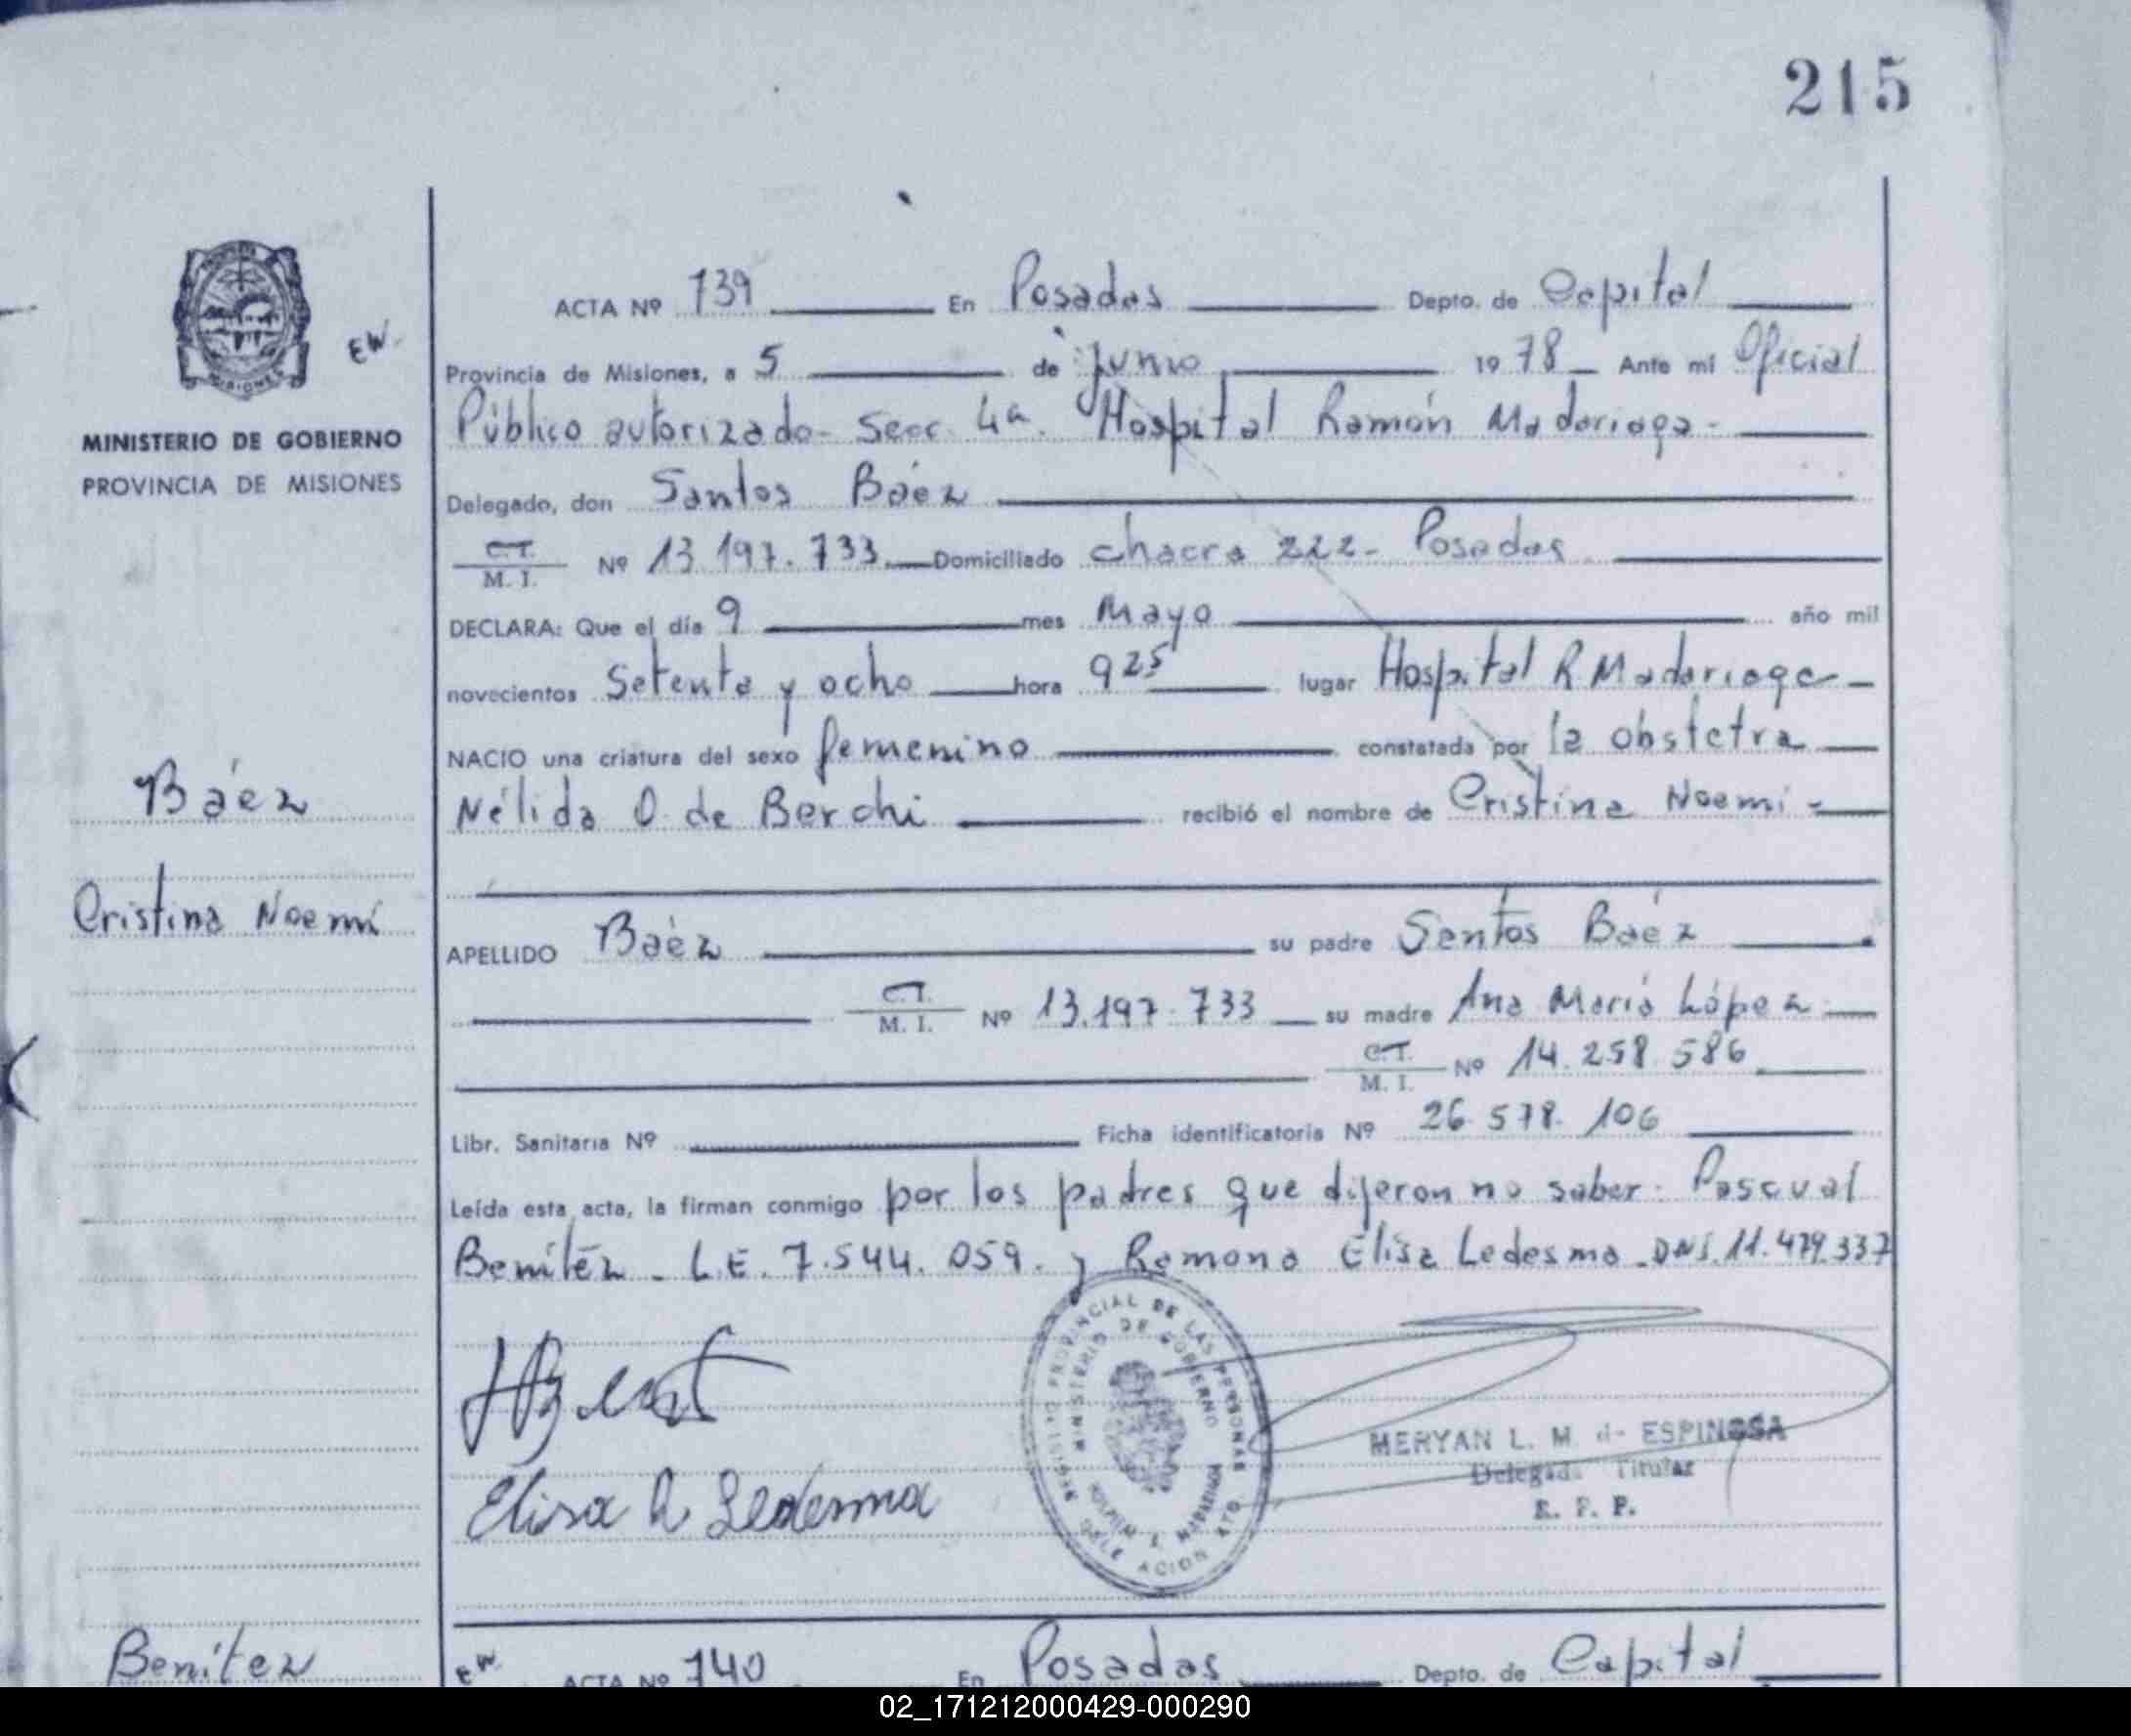 215
EW
MINISTERIO DE GOBIERNO
PROVINCIA DE MISIONES
Báez
Cristina Noemí
ACTA Nº 739 En Posadas Depto. de Capital
Provincia de Misiones, a 5 de Junio 1978 Ante mi Oficial
Público autorizado - Secc. 4ª. Hospital Ramón Madariaga -
Delegado, don Santos Báez
C.I.
M. I. Nº 13.197.733. Domiciliado Chacra 222 - Posadas
DECLARA: Que el día 9 mes Mayo año mil
novecientos Setenta y ocho hora 9 25 lugar Hospital R. Madariaga -
NACIO una criatura del sexo femenino constatada por la obstetra
Nélida O. de Berchi recibió el nombre de Cristina Noemí -
APELLIDO Báez su padre Santos Báez
C.I.
M. I. Nº 13.197.733 su madre Ana María López
C.I.
M. I. Nº 14.258.586
Libr. Sanitaria Nº Ficha identificatoria Nº 26.578.106
Leída esta acta, la firman conmigo por los padres que dijeron no saber. Pascual
Benítez - L.E. 7.544.059. y Ramona Elisa Ledesma - DNI. 11.479.337
Elisa R Ledesma
PROVINCIAL DE LAS PERSONAS
MINISTERIO DE GOBIERNO
MERYAN L. M. de ESPINOSA
Delegada Titular
R. P. P.
Benítez
EW
ACTA Nº 740 En Posadas Depto. de Capital
02_171212000429-000290